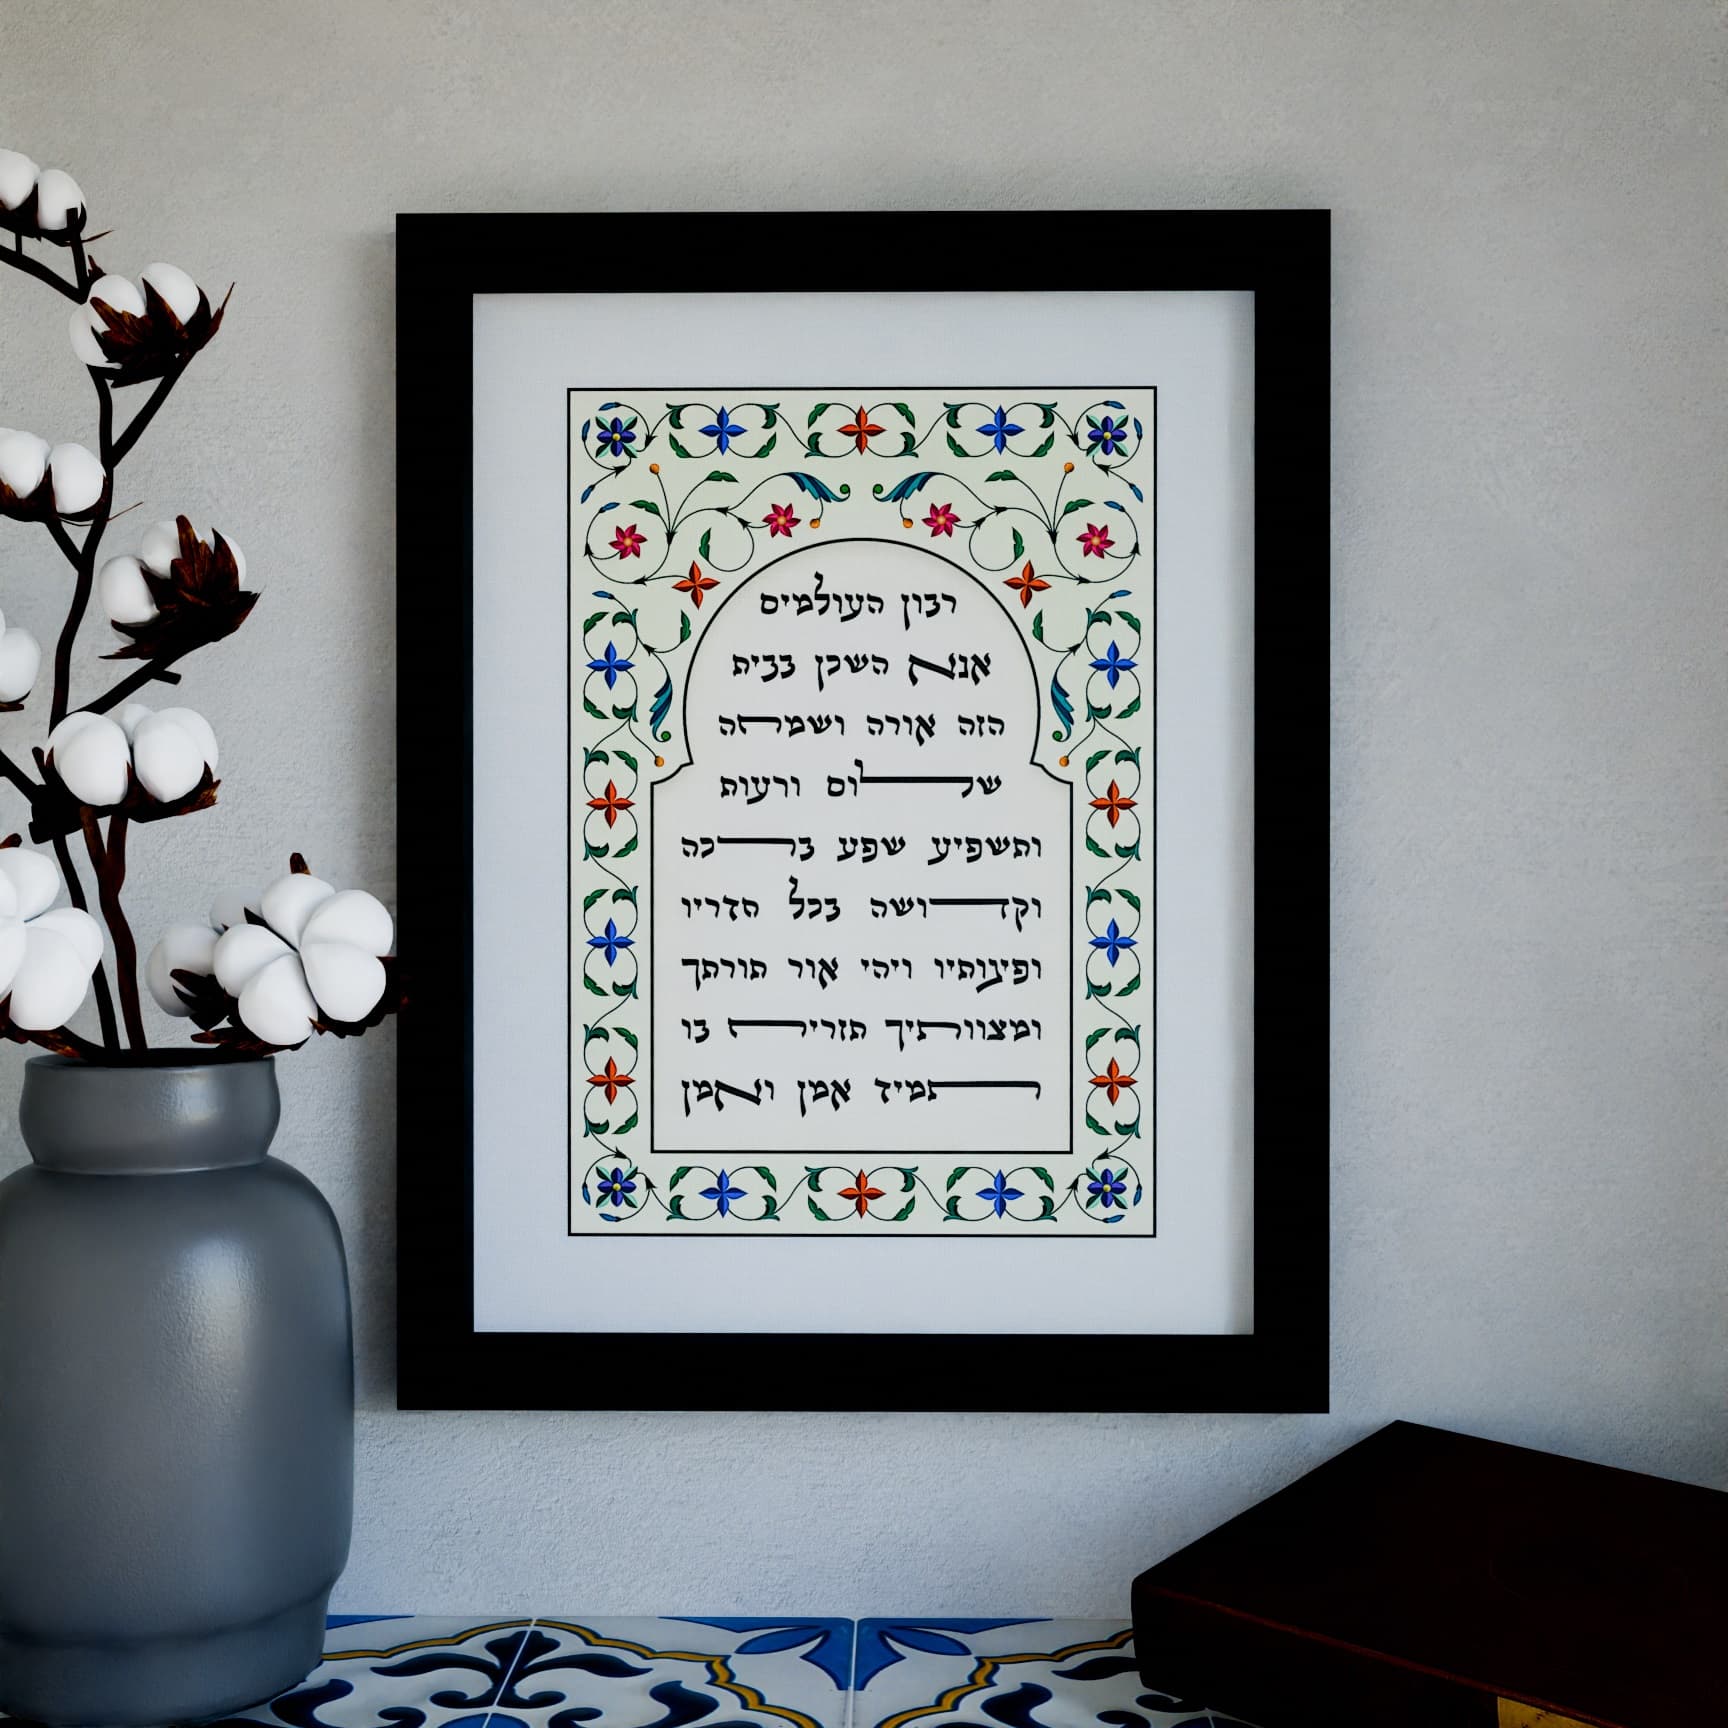 רבון העולמים
אנא השכן בבית
הזה אורה ושמחה
שלום ורעות
ותשפיע שפע ברכה
וקדושה בכל חדריו
ופינותיו ויהי אור תורתך
ומצוותיך תזריח בו
תמיד אמן ואמן